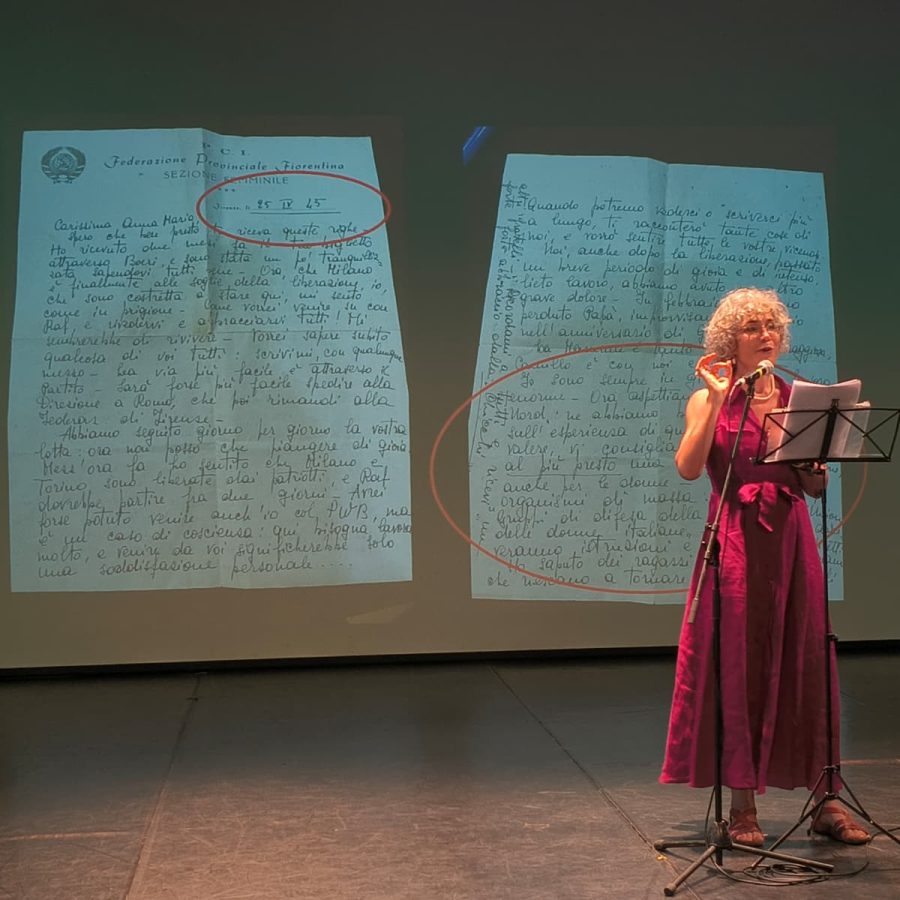 P. C. I.
Federazione Provinciale Fiorentina
SEZIONE FEMMINILE
25 IV 45
Carissima Anna Maria,
spero che ben presto tu riceva queste righe.
Ho ricevuto due mesi fa il tuo biglietto
attraverso Boeri, e sono stata un po' tranquilliz
zata sapendovi tutti - Ora, che Milano
è finalmente alle soglie della liberazione, io,
che sono costretta a stare qui, mi sento
come in prigione - come vorrei venire su con
Raf, e rivedervi e abbracciarvi tutti! Mi
sembrerebbe di rivivere - Vorrei sapere subito
qualcosa di voi tutti: scrivimi, con qualunque
mezzo - La via più facile, è attraverso il
Partito - Sarà forse più facile spedire alla
Direzione a Roma, che poi rimandi alla
Federaz. di Firenze -
Abbiamo seguito giorno per giorno la vostra
lotta: ora non posso che piangere di gioia
Mezz'ora fa ho sentito che Milano e
Torino sono liberate dai patrioti, e Raf
dovrebbe partire fra due giorni - Avrei
forse potuto venire anch'io col P.W.B., ma
è un caso di coscienza: qui bisogna lavorare
molto, e venire da voi significherebbe solo
una soddisfazione personale....
Quando potremo vederci o scriverci più
a lungo, ti racconterò tante cose di
noi, e vorrò sentire tutte le vostre vicende
Noi, anche dopo la liberazione, passato
un breve periodo di gioia e di intenso
lieto lavoro, abbiamo avuto
grave dolore - In febbraio
perduto Papà, improvvisa
nell'anniversario di
La Mamma è
è con noi e
Io sono sempre in
Ora aspettia
Nord: ne abbiamo
sull'esperienza di qu
valere, vi consiglia
al più presto una
anche per le donne
organismi di massa
gruppi di difesa della
delle donne italiane,
verranno istruzioni e
Ho saputo dei ragazzi
che riescano a tornare